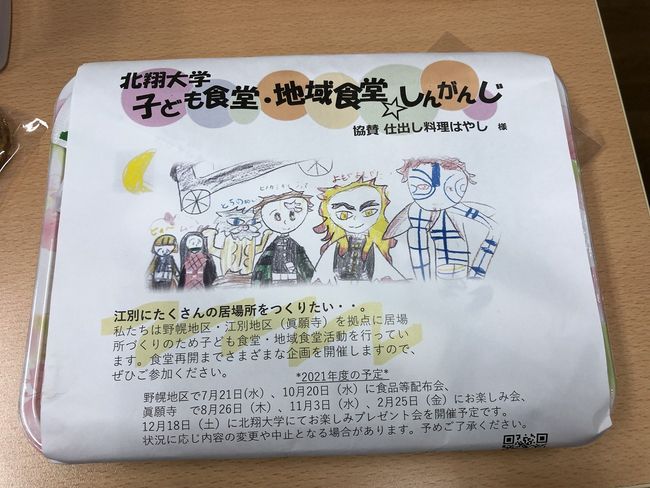 北翔大学
子ども食堂・地域食堂☆しんがんじ
協賛 仕出し料理はやし 様
江別にたくさんの居場所をつくりたい・・。
私たちは野幌地区・江別地区（眞願寺）を拠点に居場
所づくりのため子ども食堂・地域食堂活動を行ってい
ます。食堂再開までさまざまな企画を開催しますので、
ぜひご参加ください。
*2021年度の予定*
野幌地区で7月21日(水)、10月20日（水）に食品等配布会、
眞願寺 で8月26日（木）、11月3日（水）、2月25日（金）にお楽しみ会、
12月18日（土）に北翔大学にてお楽しみプレゼント会を開催予定です。
状況に応じ内容の変更や中止となる場合があります。予めご了承ください。